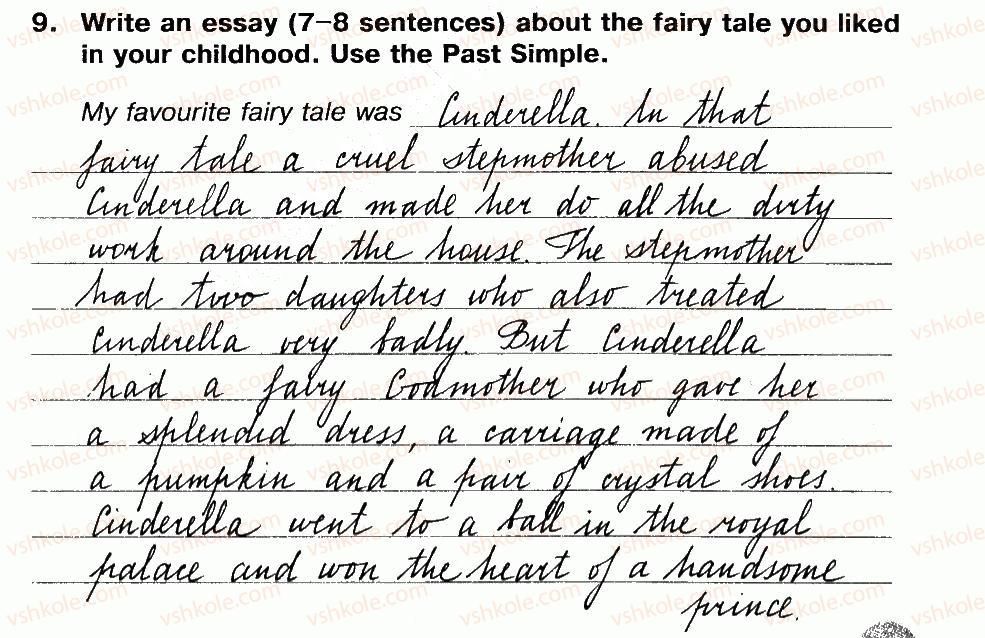 9. Write an essay (7–8 sentences) about the fairy tale you liked
in your childhood. Use the Past Simple.
My favourite fairy tale was Cinderella. In that
fairy tale a cruel stepmother abused
Cinderella and made her do all the dirty
work around the house. The stepmother
had two daughters who also treated
Cinderella very badly. But Cinderella
had a fairy Godmother who gave her
a splendid dress, a carriage made of
a pumpkin and a pair of crystal shoes.
Cinderella went to a ball in the royal
palace and won the heart of a handsome
prince.
vshkole.com